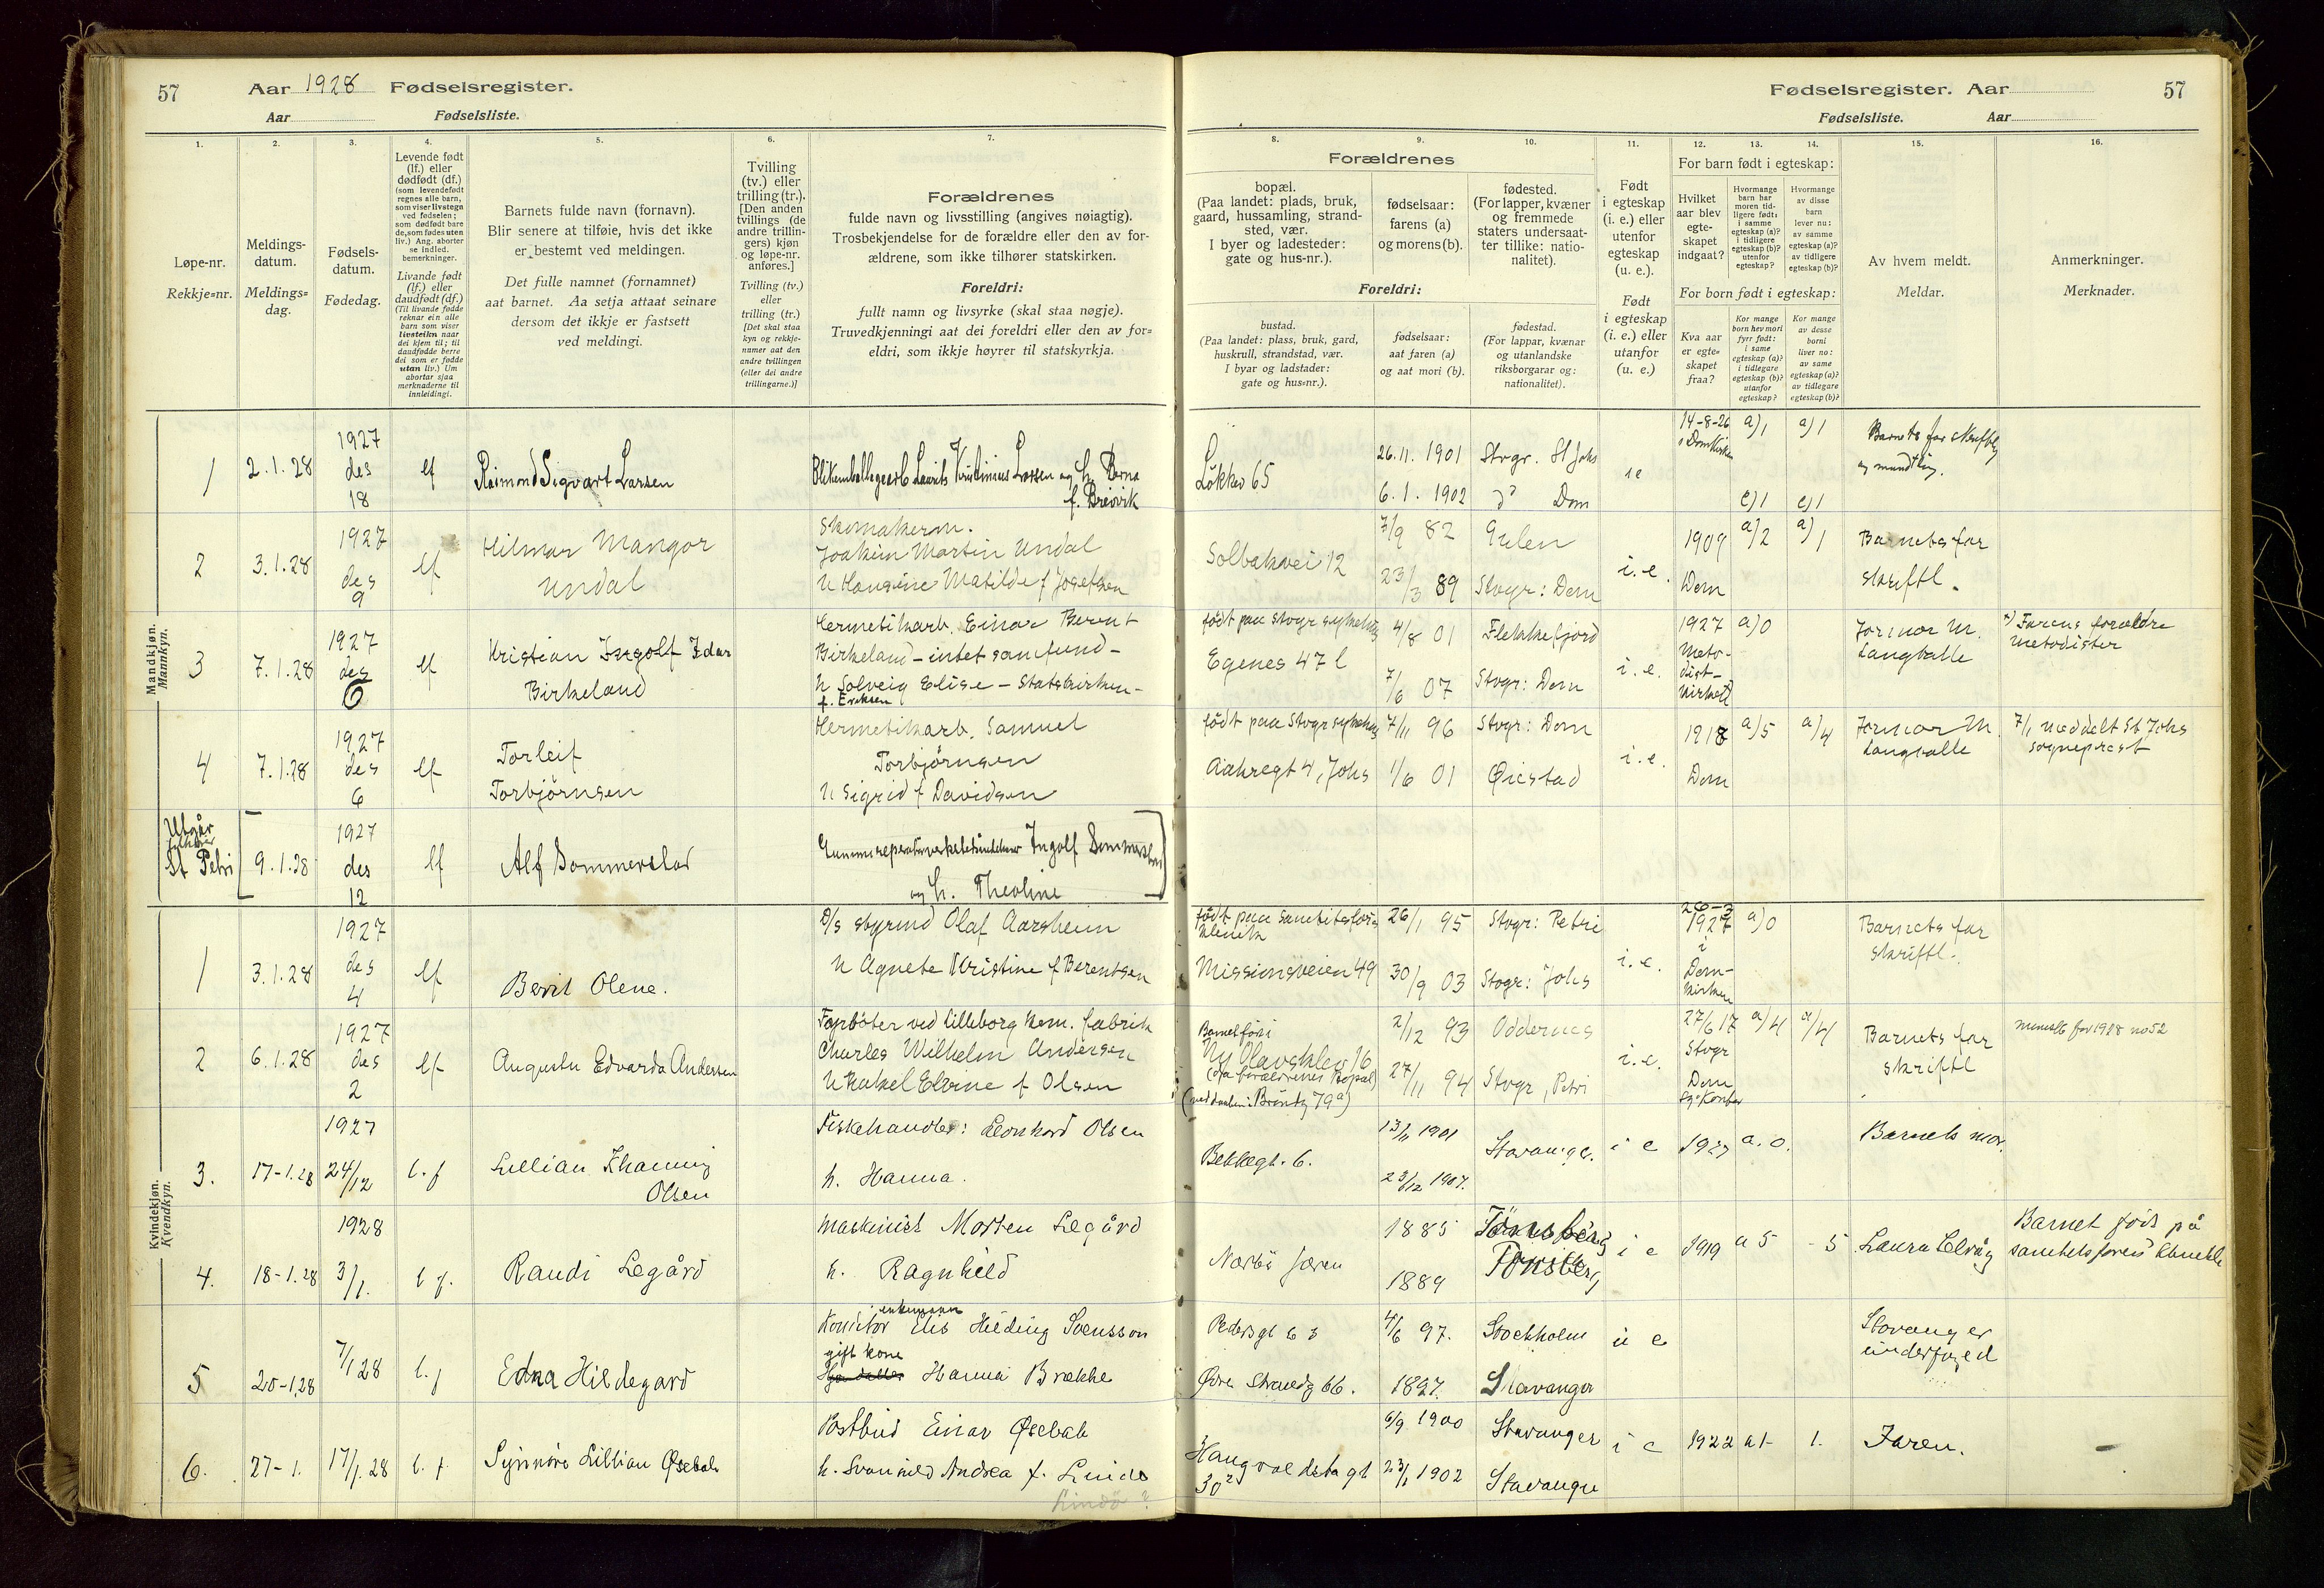 57
Aar 1928 Fødselsregister.
Aar Fødselsliste.
1.
2.
3.
4.
5.
6.
7.
Løpe-nr.
Rekkje=nr.
Meldings-
datum.
Meldings=
dag.
Fødsels-
datum.
Fødedag.
Levende født
(lf.) eller
dødfødt (df.)
(som levendefødt
regnes alle barn,
som viser livstegn
ved fødselen;
som dødfødt bare
de, som fødes uten
liv.) Ang. aborter
se indled.
bemerkninger.
Livande født
(lf.) eller
daudfødt (df.)
(Til livande fødde
reknar ein alle
barn som viser
livsteikn naar
dei kjem til; til
daudfødde berre
dei som er fødde
utan liv.) Um
abortar sjaa
merknaderne til
innleidingi.
Barnets fulde navn (fornavn).
Blir senere at tilføie, hvis det ikke
er bestemt ved meldingen.
Det fulle namnet (fornamnet)
aat barnet. Aa setja attaat seinare
dersom det ikkje er fastsett
ved meldingi.
Tvilling
(tv.) eller
trilling (tr.).
[Den anden
tvillings (de
andre trillin-
gers) kjøn
og løpe-nr.
anføres.]
Tvilling (tv.)
eller
trilling (tr.)
[Det skal staa
kyn og rekkje-
numer aat den
andre tvillingen
(eller dei andre
trillingarne.)]
Forældrenes
fulde navn og livsstilling (angives nøiagtig).
Trosbekjendelse for de forældre eller den av for-
ældrene, som ikke tilhører statskirken.
Foreldri:
fullt namn og livsyrke (skal staa nøgje).
Truvedkjenningi aat dei foreldri eller den av for=
eldri, som ikkje høyrer til statskyrkja.
Fødselsregister. Aar
57
Fødselsliste. Aar
8.
9.
10.
11.
12.
13.
14.
15.
16.
Forældrenes
bopæl.
(Paa landet: plads, bruk,
gaard, hussamling, strand-
sted, vær.
I byer og ladesteder:
gate og hus-nr.).
fødselsaar:
farens (a)
og morens (b).
fødested.
(For lapper, kvæner
og fremmede
staters undersaat-
ter tillike: natio-
nalitet).
Foreldri:
bustad.
(Paa landet: plass, bruk, gard,
huskrull, strandstad, vær.
I byar og ladstader:
gate og hus=nr.).
fødselsaar:
aat faren (a)
og aat mori (b).
fødestad.
(For lappar, kvænar
og utanlandske
riksborgarar og:
nationalitet).
Født
i egteskap
(i. e.) eller
utenfor
egteskap
(u. e.).
Født
i egteskap
(i. e.) eller
utanfor
(u. e.)
For barn født i egteskap:
Hvilket
aar blev
egte-
skapet
indgaat?
Hvormange
barn har
moren tid-
ligere født:
i samme
egteskap (a)?
i tidligere
egteskap (b)?
utenfor
egteskap?
Hvormange
av disse
barn
lever nu:
av samme
egteskap (a)?
av tidligere
egteskap (b)?
For born født i egteskap:
Kva aar
er egte=
skapet
fraa?
Kor mange
born hev mori
fyrr født:
i same
egteskap (a)?
i tidlegare
egteskap (b)?
utanfor
egteskap?
Kor mange
av desse
borni
liver no:
av same
egteskap (a)?
av tidlegare
egteskap (b)?
Av hvem meldt.
Meldar.
Anmerkninger.
Merknader.
Mandkjøn.
Mannkyn.
1 2.1.28 1927 des 18 lf Raimond Sigvart Larsen
Blikemballagearb Laurits Kristinius Larsen og h. Berna
f. Breivik
Løkkev 65 26.11.1901 Stvgr. St Johs ie 14-8-26 i Domkirken a)1 a)1 Barnets far skriftlig
og mundtlig.
6.1.1902 do Dom c)1 c)1
2 3.1.28 1927 des 9 lf Hilmar Mangor
Undal
Skomakerm.
Joakim Martin Undal
h Hansine Matilde f Josefsen
Solbakvei 12 7/9 82 Gulen i.e. 1909 a)2 a)1 Barnets far
23/3 89 Stvgr: Dom Dom skriftl.
3 7.1.28 1927 des 6 lf Kristian Ingolf Idar
Birkeland
Hermetikarb. Einar Berent
Birkeland - intet samfund -
h Solveig Elise - Statskirken -
f. Eriksen
født paa Stvgr sykehus 4/8 01 Flekkefjord 1927 a)0 Jormor M.
Egenes 47 l i.e. Meto-
dist-
kirken Langballe
7/6 07 Stvgr: Dom
x) Farens forældre
metodister
4 7.1.28 1927 des 6 lf Torleif
Torbjørnsen
Hermetikarb. Samuel
Torbjørnsen
h Sigrid f Davidsen
født paa Stvgr sykehus 7/11 96 Stvgr: Dom i.e. 1918 a)5 a)4 Jormor M.
Langballe
Aakregt 4, Johs 1/6 01 Øiestad Dom
7/1 meddelt St Johs
sogneprest
Utgår
St Petri 9.1.28 1927 des 12 lf Alf Sommerstad
Ingolf Sommerstad
og h. Theoline
Kvindekjøn.
Kvendkyn.
1 3.1.28 1927 des 4 lf Berit Olene.
D/s styrmd Olaf Aarsheim
h Agnete Kristine f Berentsen
født paa Sanitetsfor:s
klinik 26/1 95 Stvgr: Petri i.e. 26-3
1927
i
Dom-
kirken a)0 Barnets far
skriftl.
Missionsveien 49 30/9 03 Stvgr: Johs
2 6.1.28 1927 des 2 lf Augusta Edvarda Andersen
Fyrbøter ved Lilleborg kem. fabrik
Charles Wilhelm Andersen
h Rakel Elvine f Olsen
Barnet født i
Ny Olavsklev 16
(også forældrenes Bopæl)
(ved daaben: Brøntz 79a)
2/12 93 Oddernes i.e. 27/6 17
Stvgr
Dom
a)4 a)4 Barnets far
skriftl
27/11 94 Stvgr, Petri
3. 17-1.28 1927 24/12 l.f Lillian Fhanny
Olsen
Fiskehandler: Leonhard Olsen
h. Hanna.
Bekkegt. 6. 13/11 1901 Stavanger. i e 1927 a.o. Barnets mor.
23/12 1907.
4. 18-1.28 1928 3/1. l f. Randi Legård
Maskinist Morten Legård
h. Ragnhild
Nærbø Jæren 1885 Tønsberg i e 1919 a 5 - 5 Laura Elvåg
1889 Tønsberg
Barnet født på
sanitetsforens klinikk
5 20-1.28 7/1 28 l.f Edna Hildegard
enkemann
Konditor Elis Hilding Svensson
gift kone
Hanna Brekke
Pedersgt 63 4/6 97. Stockholm u e Stavanger
Øvre Strandg 66. 1897. Stavanger
6. 27-1. 17/1.28 l.f Synnøve Lillian Øsebak
Postbud Einar Øsebak
h. Svanhild Andrea f. Linde
Lindø ?
Haugvaldstagt
30² 6/9 1900 Stavanger i e 1922 a1- 1. Faren. -
23/1 1902 Stavanger